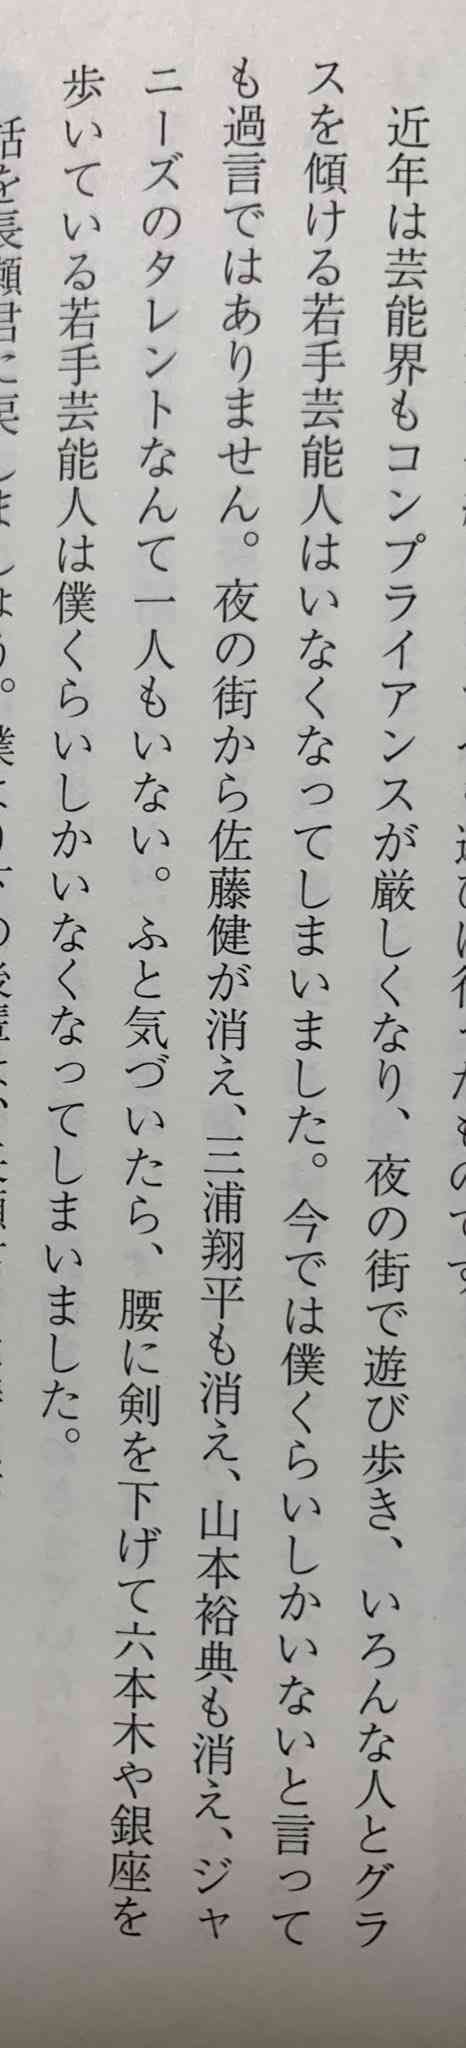 遊びに行ったものです
近年は芸能界もコンプライアンスが厳しくなり、夜の街で遊び歩き、いろんな人とグラ
スを傾ける若手芸能人はいなくなってしまいました。今では僕くらいしかいないと言って
も過言ではありません。夜の街から佐藤健が消え、三浦翔平も消え、山本裕典も消え、ジャ
ニーズのタレントなんて一人もいない。ふと気づいたら、腰に剣を下げて六本木や銀座を
歩いている若手芸能人は僕くらいしかいなくなってしまいました。
話を長瀬君に戻しましょう。僕より下の後輩は、